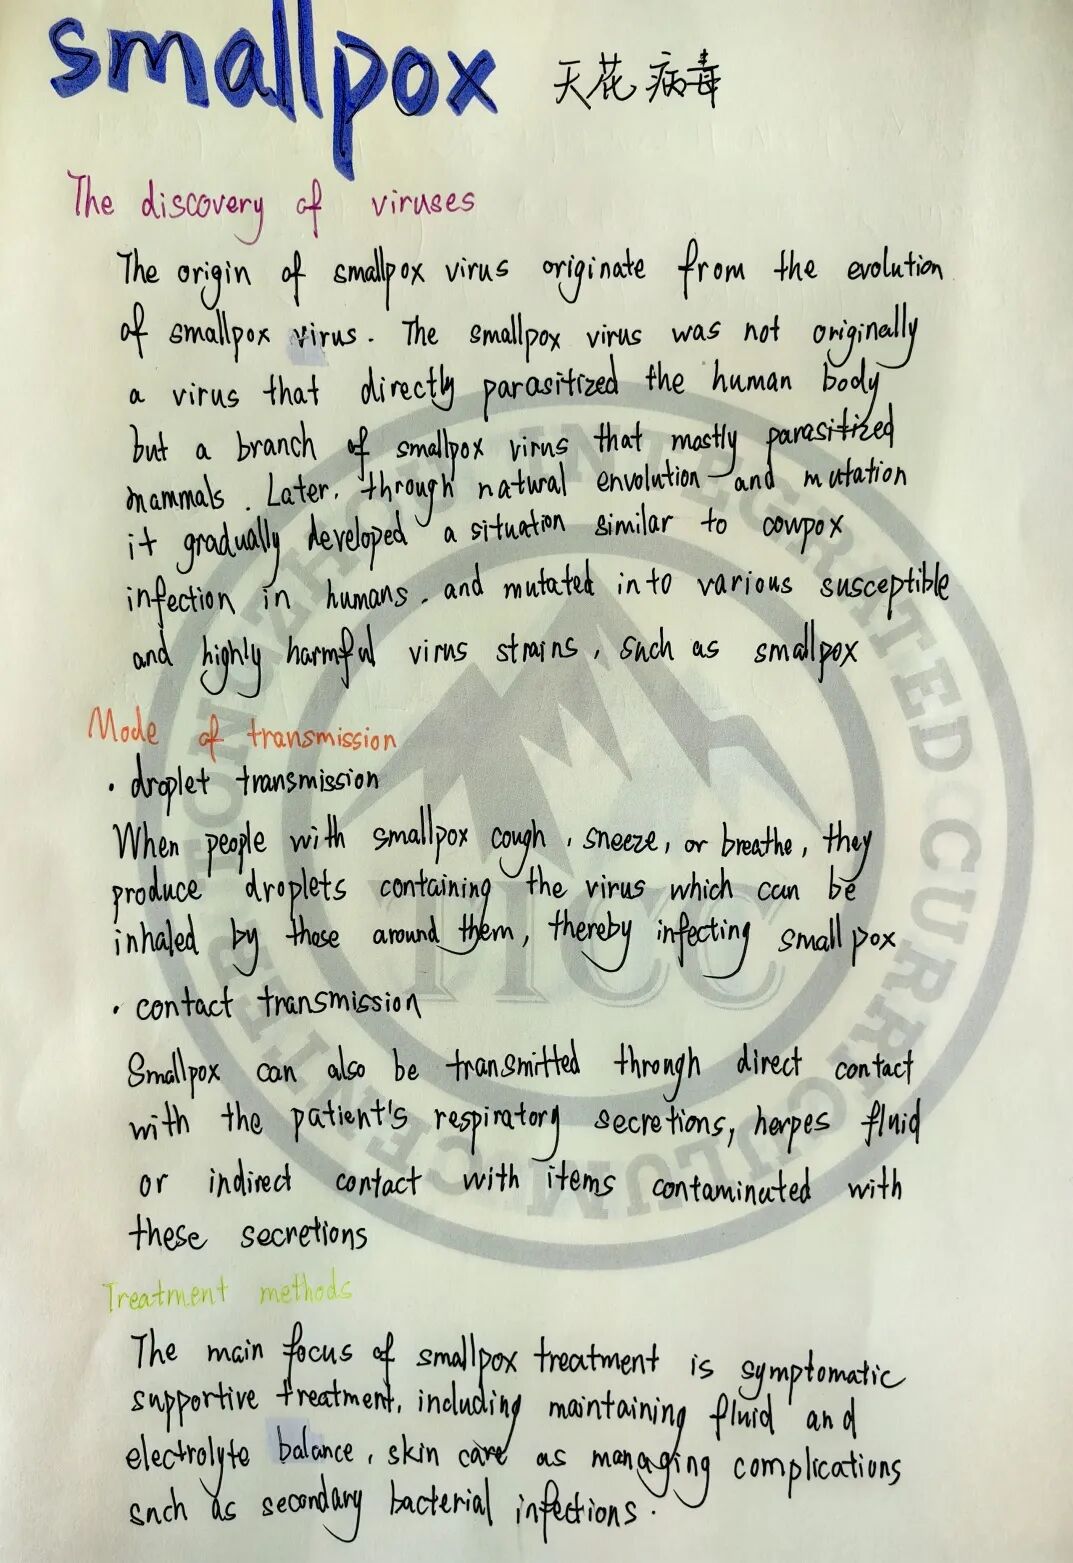 smallpox 天花病毒
The discovery of viruses
The origin of smallpox virus originate from the evolution
of smallpox virus. The smallpox virus was not originally
a virus that directly parasitized the human body
but a branch of smallpox virus that mostly parasitized
mammals. Later, through natural envolution and mutation
it gradually developed a situation similar to cowpox
infection in humans. and mutated into various susceptible
and highly harmful virus strains, such as smallpox
Mode of transmission
· droplet transmission
When people with smallpox cough, sneeze, or breathe, they
produce droplets containing the virus which can be
inhaled by those around them, thereby infecting smallpox
· contact transmission
Smallpox can also be transmitted through direct contact
with the patient's respiratory secretions, herpes fluid
or indirect contact with items contaminated with
these secretions
Treatment methods
The main focus of smallpox treatment is symptomatic
supportive treatment, including maintaining fluid and
electrolyte balance, skin care as managing complications
such as secondary bacterial infections.
TONGZHOU INTEGRATED CURRICULUM CENTER
TICC